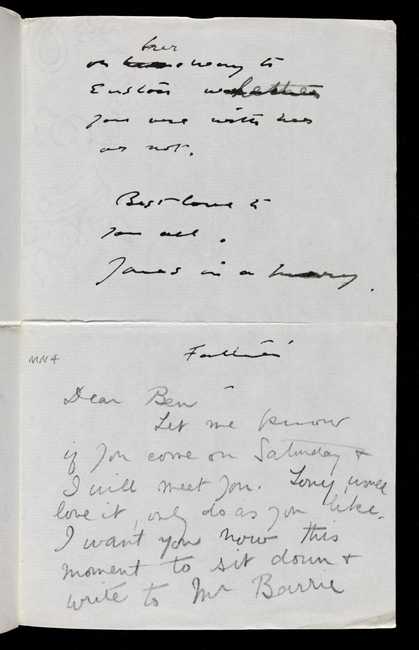 your
on way to
Euston whether
you are with us
or not.
Best love to
you all.
Yours in a hurry.
Father
MM4
Dear Ben
Let me know
if you come on Saturday &
I will meet you. Tony would
love it, only do as you like.
I want you now this
moment to sit down &
write to Mr Barrie